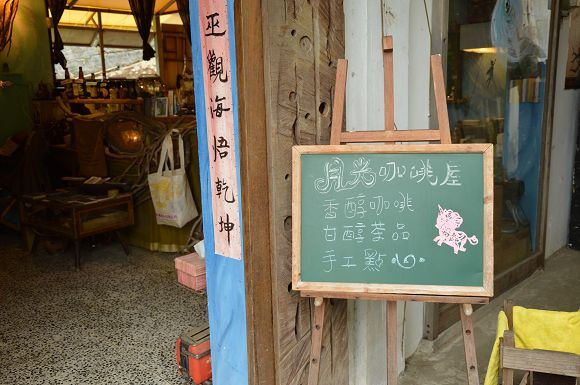 巫觀海悟乾坤
月光咖啡屋
香醇咖啡
甘醇茶品
手工點心